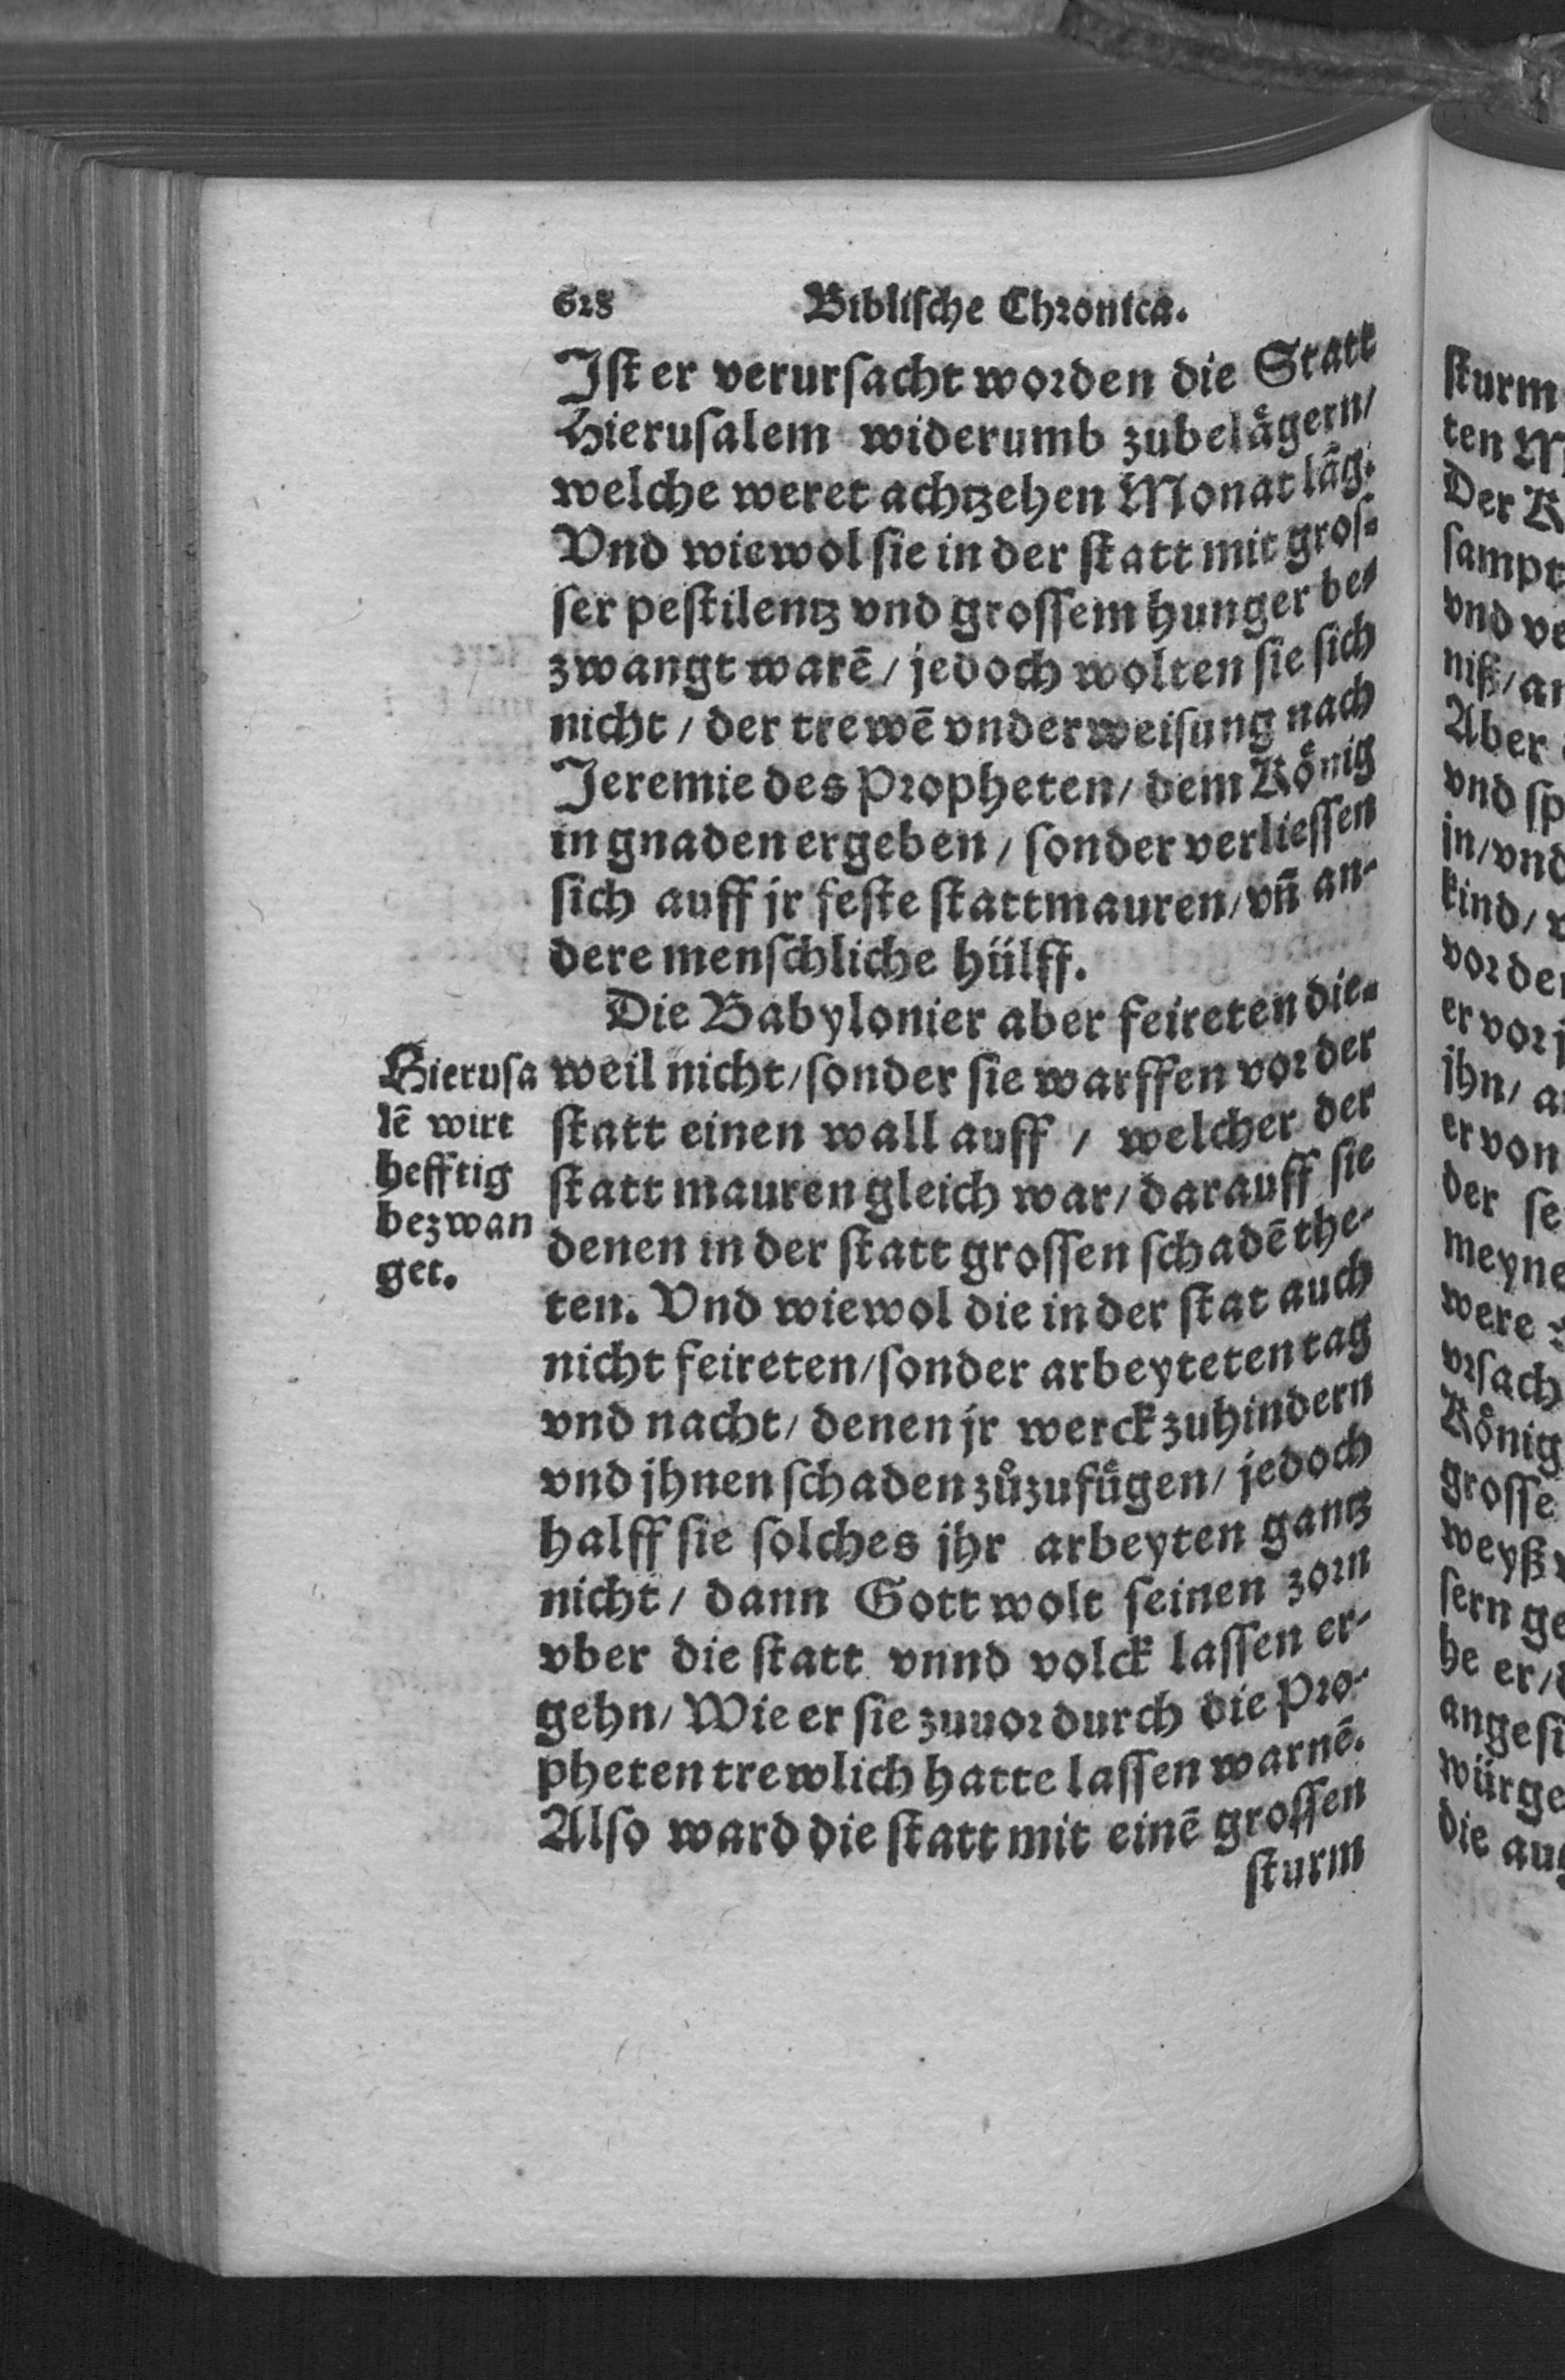 628 Biblische Chronica.
Ist er verursacht worden die Statt
Hierusalem widerumb zubelågern/
welche weret achtzehen Monat lãg.
Vnd wiewol sie in der statt mit gros-
ser pestilentz vnd grossem hunger be-
zwangt warẽ/ jedoch wolten sie sich
nicht/ der trewẽ vnderweisung nach
Jeremie des Propheten/ dem Kônig
in gnaden ergeben/ sonder verliessen
sich auff jr feste stattmauren/ vñ an-
dere menschliche hülff.
Die Babylonier aber feireten die-
weil nicht/ sonder sie warffen vor der
statt einen wall auff/ welcher der
statt mauren gleich war/ darauff sie
denen in der statt grossen schadẽ the-
ten. Vnd wiewol die in der stat auch
nicht feireten/ sonder arbeyteten tag
vnd nacht/ denen jr werck zuhindern
vnd jhnen schaden zůzufůgen/ jedoch
halff sie solches jhr arbeyten gantz
nicht/ dann Gott wolt seinen zorn
vber die statt vnnd volck lassen er-
gehn/ Wie er sie zuuor durch die Pro-
pheten trewlich hatte lassen warnẽ.
Also ward die statt mit einẽ grossen
sturm
Hierusa
lẽ wirt
hefftig
bezwan
get.
sturm
ten
Der
sampt
vnd
niß/
Aber
vnd
jn/ vnd
kind/
vor
er vor
jhn/
er von
der
meyne
were
vrsach
Kônig
grosse
weyß
sern
he er/
angesi
würge
die